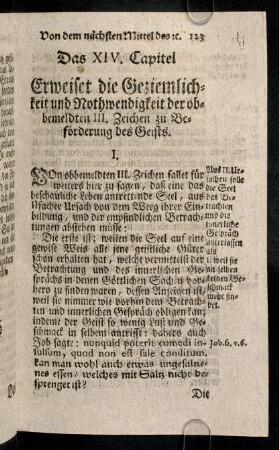 Von dem nächsten Mittel des ꝛc. 123
Das XIV. Capitel
Erweiset die Geziemlich-
keit und Nothwendigkeit der ob-
bemeldten III. Zeichen zu Be-
förderung des Geists.
I.
VOn obbemeldten III. Zeichen fallet für
weiters hier zu sagen, daß eine das
beschauliche Leben antrettende Seel, aus
Ursach von dem Weg ihrer Ein-
bildung, und der empfindlichen Betrach-
tungen abstehen müsse:
Die erste ist; weilen die Seel auf eine
gewise Weis alle jene geistliche Güter
schon erhalten hat, welche vermittelst der
Betrachtung und des innerlichen Ge-
sprächs in denen Göttlichen Sachen vor-
ders zu finden waren, dessen Anzeigen ist,
weil sie nimmer wie vorhin dem Betrach-
ten und innerlichen Gespräch obligen kan;
indeme der Geist so wenig Lust und Ge-
schmack in selbem antrifft: dahero auch
Job sagte: nunquid poterit comedi in-
sulsum, quod non est sale conditum.
kan man wohl auch etwas ungesalze-
nes essen, welches mit Saltz nicht be-
sprenget ist?
Die
Aus II. Ur-
sachen solle
die Seel
das Be-
trachten
und die
innerliche
Gespräch
unterlassen
weil sie
in selben
keinen Ge-
schmack
mehr fin-
det.
Job. 6. v. 6.